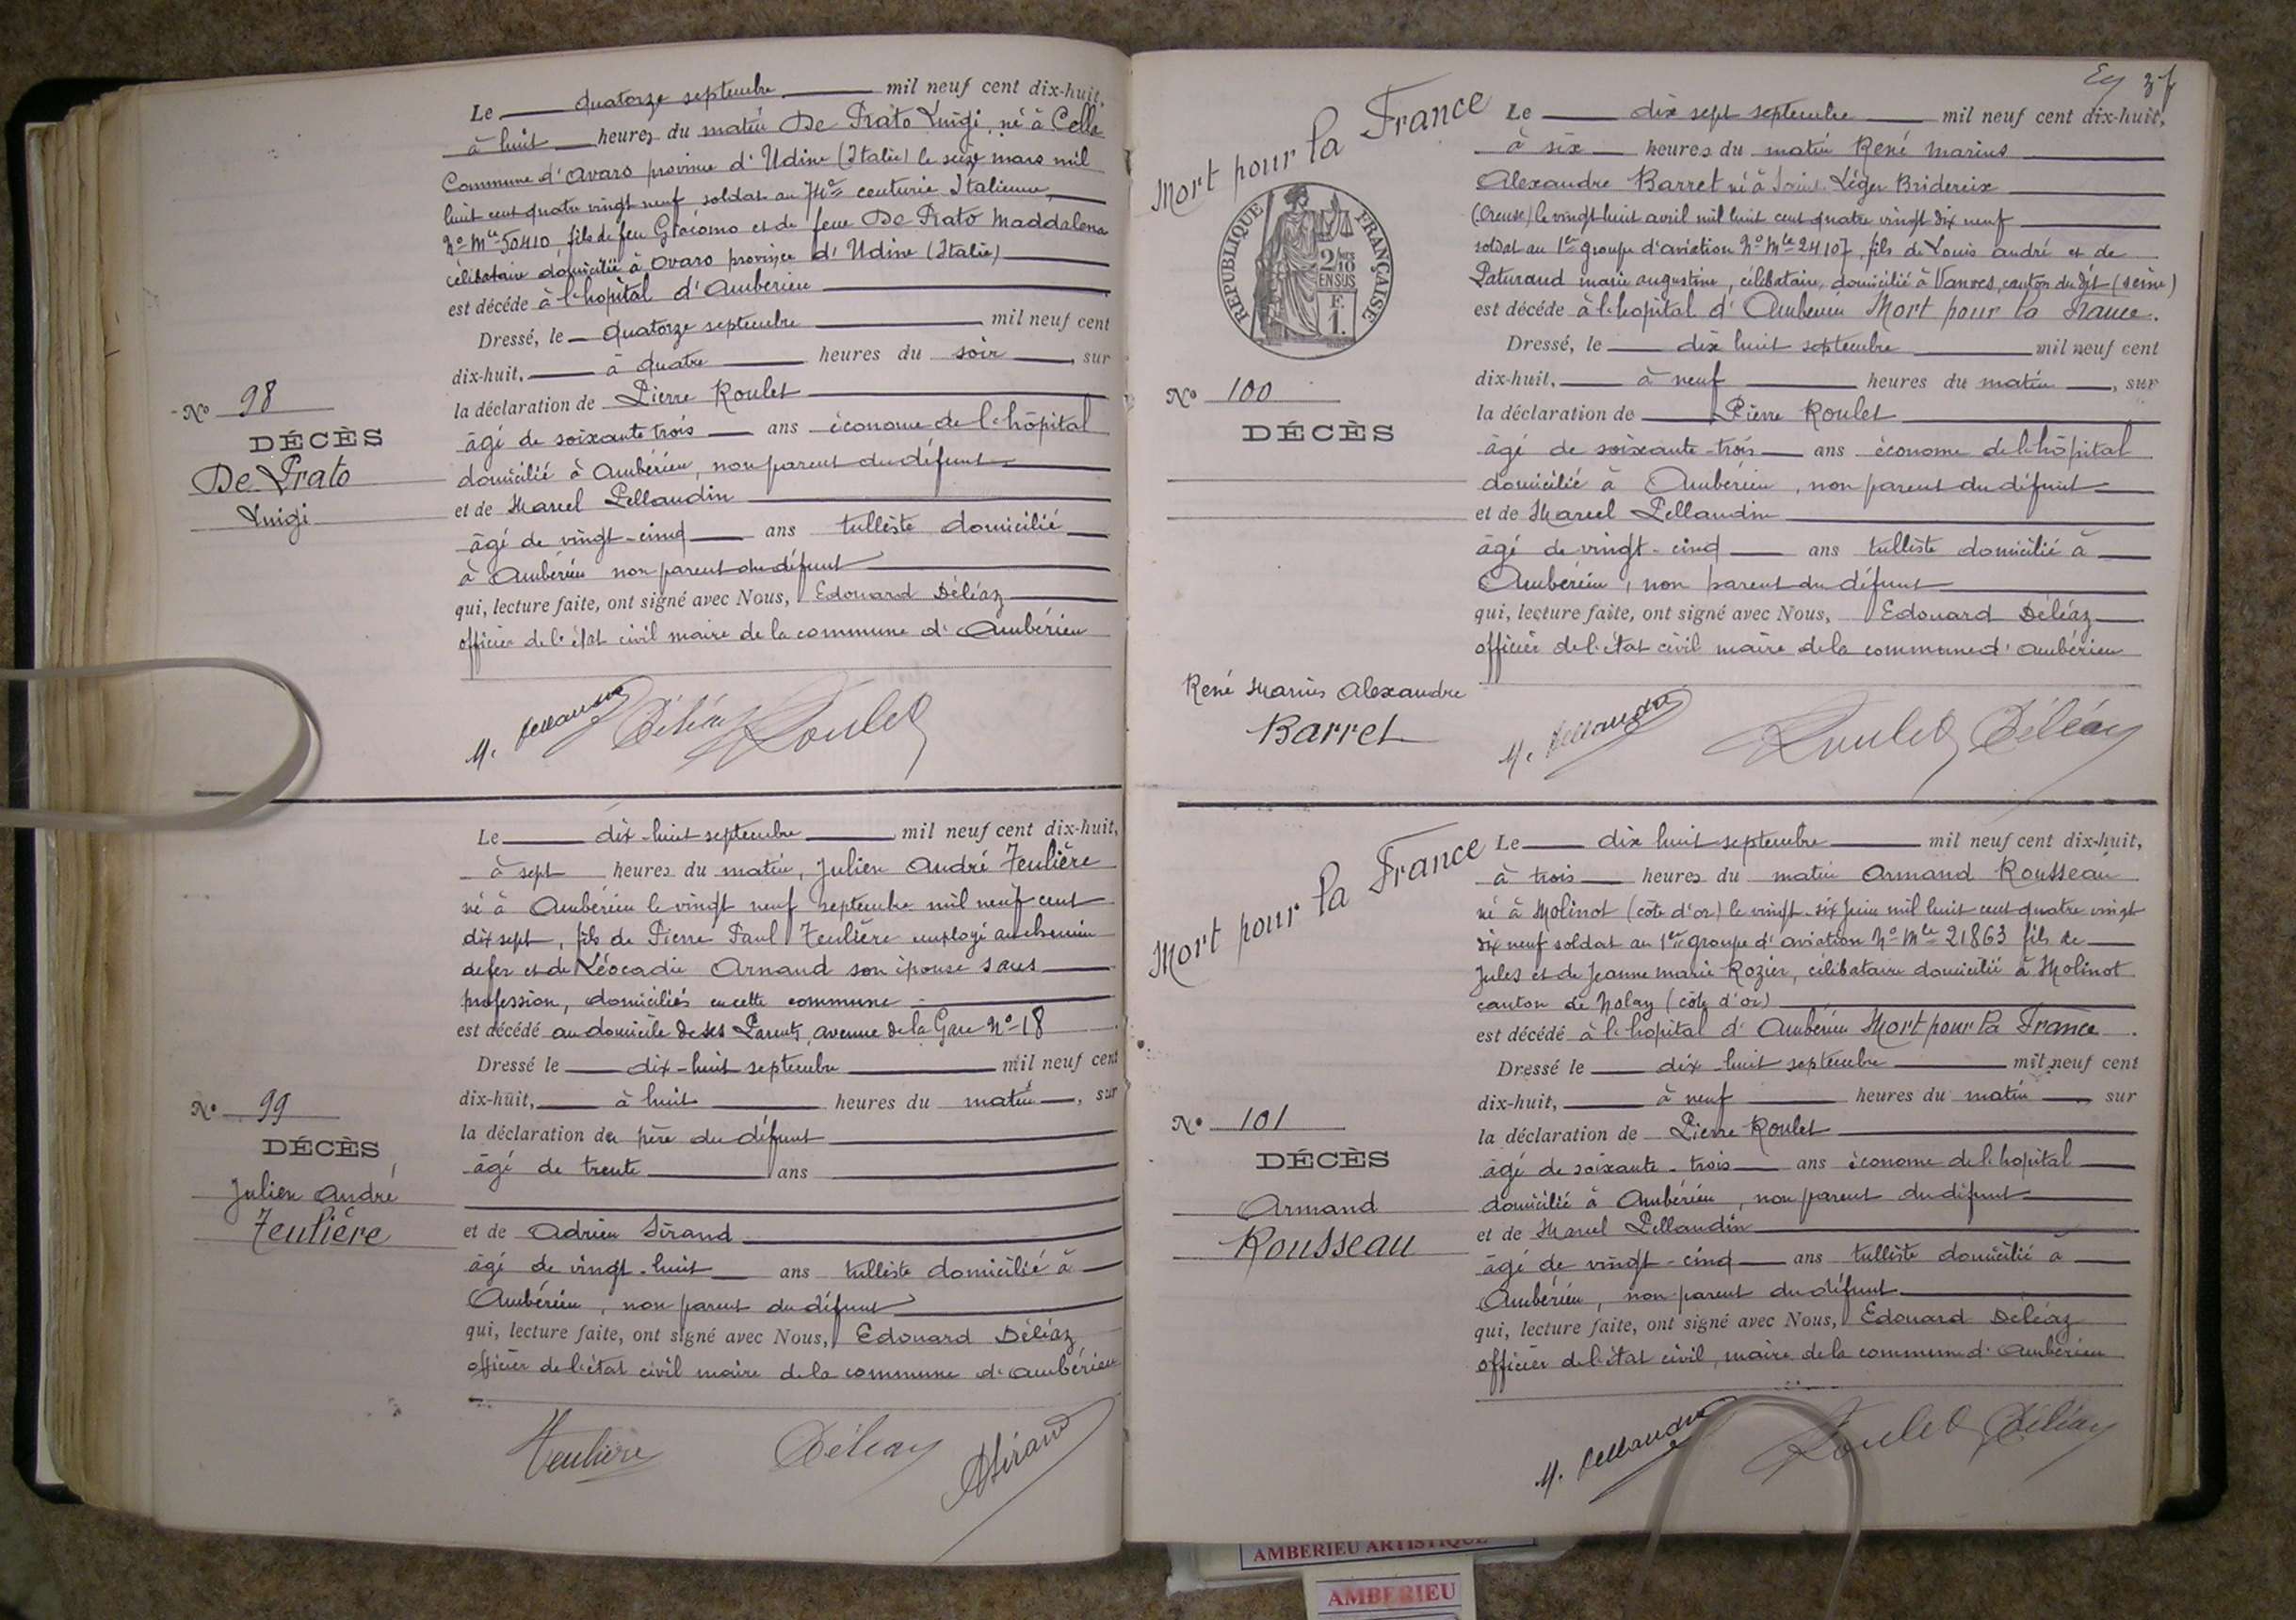 Le quatorze septembre mil neuf cent dix-huit,
à huit heures du matin De Prato Luigi, né à Cella
Commune d'Ovaro province d'Udine (Italie) le seize mars mil
huit cent quatre vingt neuf soldat au 74e centurie Italienne,
No Mle 50410, fils de feu Giacomo et de feue De Prato Maddalena
célibataire domicilié à Ovaro province d'Udine (Italie)
est décédé à l'hopital d'Ambérieu
Dressé, le quatorze septembre mil neuf cent
dix-huit, à quatre heures du soir, sur
la déclaration de Pierre Roulet
âgé de soixante trois ans économe de l'hôpital
domicilié à Ambérieu, non parent du défunt
et de Marcel Pellaudin
âgé de vingt-cinq ans tulliste domicilié
à Ambérieu non parent du défunt
qui, lecture faite, ont signé avec Nous, Edouard Déléaz
officier de l'état civil maire de la commune d'Ambérieu
No 98
DÉCÈS
De Prato
Luigi
M. Pellaudin Déléaz Roulet
Le dix-huit septembre mil neuf cent dix-huit,
à sept heures du matin, Julien André Teulière
né à Ambérieu le vingt neuf septembre mil neuf cent
dix sept, fils de Pierre Paul Teulière employé au chemin
de fer et de Léocadie Arnaud son épouse sans
profession, domiciliés en cette commune
est décédé au domicile de ses Parents, avenue de la Gare No 18
Dressé le dix-huit septembre mil neuf cent
dix-huit, à huit heures du matin, sur
la déclaration du père du défunt
âgé de trente ans
et de Adrien Sirand
âgé de vingt-huit ans tulliste domicilié à
Ambérieu, non parent du défunt
qui, lecture faite, ont signé avec Nous, Edouard Déléaz
officier de l'état civil maire de la commune d'Ambérieu
No 99
DÉCÈS
Julien André
Teulière
Teulière Déléaz ASirand
Mort pour la France
RÉPUBLIQUE FRANÇAISE
2/10
EN SUS
F.
1.
Le dix sept septembre mil neuf cent dix-huit,
à six heures du matin René Marius
Alexandre Barret né à Saint Léger Bridereix
(Creuse) le vingt huit avril mil huit cent quatre vingt dix neuf
soldat au 1er groupe d'aviation No Mle 24107, fils de Louis André et de
Paturaud Marie Augustine, célibataire, domicilié à Vanves, canton du dit (Seine)
est décédé à l'hopital d'Ambérieu Mort pour la France.
Dressé, le dix huit septembre mil neuf cent
dix-huit, à neuf heures du matin, sur
la déclaration de Pierre Roulet
âgé de soixante-trois ans économe de l'hôpital
domicilié à Ambérieu, non parent du défunt
et de Marcel Pellaudin
âgé de vingt-cinq ans tulliste domicilié à
Ambérieu, non parent du défunt
qui, lecture faite, ont signé avec Nous, Edouard Déléaz
officier de l'état civil maire de la commune d'Ambérieu
No 100
DÉCÈS
René Marius Alexandre
Barret
M. Pellaudin Roulet Déléaz
Mort pour la France
Le dix huit septembre mil neuf cent dix-huit,
à trois heures du matin Armand Rousseau
né à Molinot (côte d'or) le vingt-six juin mil huit cent quatre vingt
dix neuf soldat au 1er groupe d'aviation No Mle 21863 fils de
Jules et de Jeanne Marie Rozier, célibataire domicilié à Molinot
canton de Nolay (côte d'or)
est décédé à l'hopital d'Ambérieu Mort pour la France.
Dressé le dix huit septembre mil neuf cent
dix-huit, à neuf heures du matin sur
la déclaration de Pierre Roulet
âgé de soixante-trois ans économe de l'hopital
domicilié à Ambérieu, non parent du défunt
et de Marcel Pellaudin
âgé de vingt-cinq ans tulliste domicilié à
Ambérieu, non parent du défunt
qui, lecture faite, ont signé avec Nous, Edouard Déléaz
officier de l'état civil, maire de la commune d'Ambérieu
No 101
DÉCÈS
Armand
Rousseau
M. Pellaudin Roulet Déléaz
AMBERIEU ARTISTIQUE
AMBERIEU